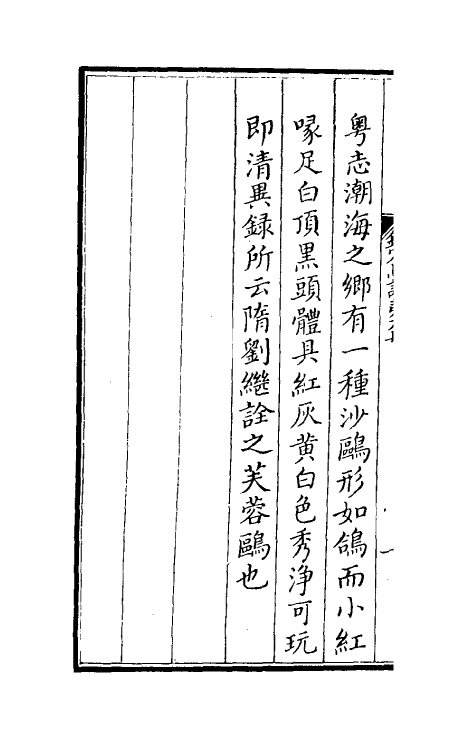 粤志潮海之鄉有一種沙鷗形如鴿而小紅
喙足白頂黒頭體具紅灰黄白色秀浄可玩
即清異録所云隋劉繼詮之芙蓉鷗也